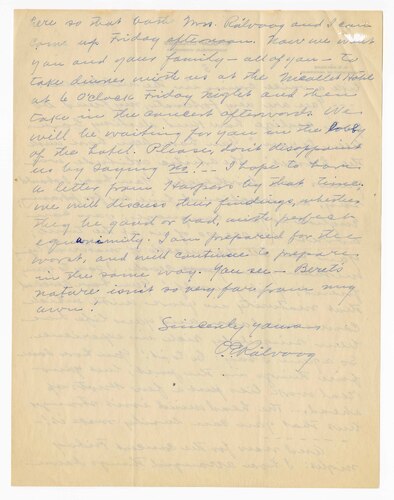 here so that both Mrs. Rölvaag and I can
come up Friday afternoon. Now we want
you and your family – all of you – to
take dinner with us at the Nicollet Hotel
at 6 O'clock Friday night and then
take in the concert afterwords. We
will be waiting for you in the lobby
of the hotel. Please, don't disappoint
us by saying no! – I hope to have
a letter from Harpers by that time.
We will discuss their findings, whether
they be good or bad, with perfect
equanimity. I am prepared for the
worst, and will continue to prepare
in the same way. You see – Berit's
nature isn't so very far from my
own!
Sincerely yours
O.E. Rölvaag